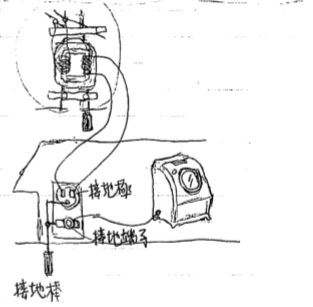 接地極
接地端子
接地棒